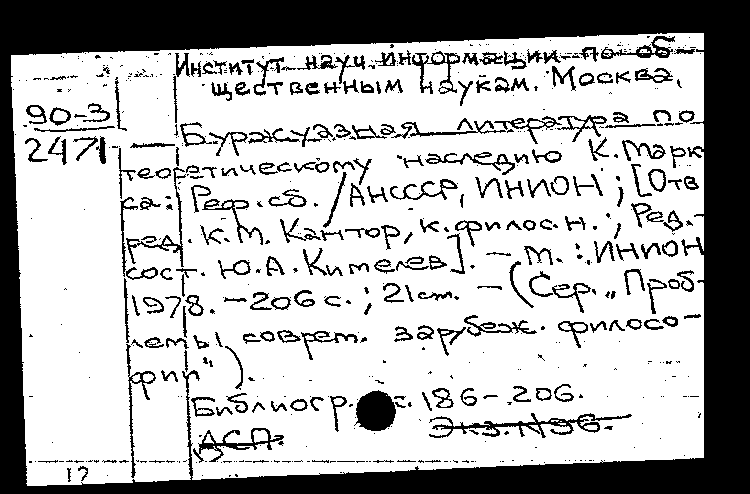 Институт науч. информации по об-
щественным наукам. Москва.
90-3
2471
Буржуазная литература по
теоретическому наследию К. Марк
са: Реф. сб. / АНСССР, ИНИОН; [Отв
ред. К.М. Кантор, к.филос.н.; Ред.-
сост. Ю.А. Кимелев]. – М.: ИНИОН
1978. – 206 с.; 21 см. – (Сер. „Проб-
лемы соврет. зарубеж. филосо-
фии").
Библиогр. с. 186-206.
ДСП.
Экз. N 96.
12